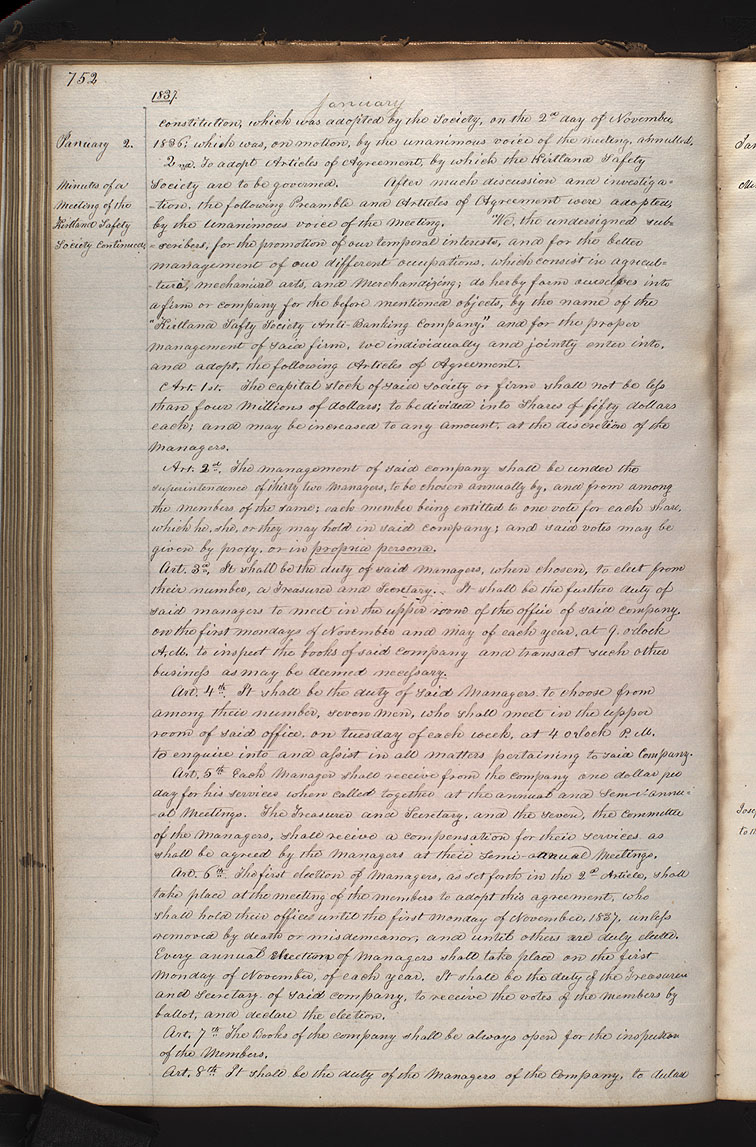 752
1837.
January
constitution, which was adopted by the Society, on the 2nd day of November,
January 2.
1836; which was, on motion, by the unanimous voice of the meeting, annulled.
2nd. To adopt Articles of Agreement, by which the Kirtland Safety
Minutes of a
Society are to be governed. After much discussion and investiga-
Meeting of the
-tion, the following Preamble and Articles of Agreement were adopted,
Kirtland Safety
by the unanimous voice of the meeting. "We, the undersigned sub-
Society Continued,
-scribers, for the promotion of our temporal interests, and for the better
management of our different occupations, which consist in agricul-
-ture, mechanical arts, and Merchandizing; do herby form ourselves into
a firm or company for the before mentioned objects, by the name of the
"Kirtland Safty Society Anti-Banking Company," and for the proper
management of said firm, we individually and jointly enter into,
and adopt, the following Articles of Agreement.
Art. 1st. The capital stock of said society or firm shall not be less
than four Millions of dollars; to be divided into Shares of fifty dollars
each; and may be increased to any amount, at the discretion of the
Managers.
Art. 2d. The management of said company shall be under the
superintendence of thirty two Managers, to be chosen annually by, and from among
the members of the same; each member being entitled to one vote for each share,
which he, she, or they may hold in said company; and said votes may be
given by proxy, or in propria persona.
Art. 3d, It shall be the duty of said Managers, when chosen, to elect from
their number, a Treasurer and Secretary. It shall be the further duty of
said managers to meet in the upper room of the office of said company,
on the first mondays of November and may of each year, at 9. o'clock
A,M. to inspect the books of said company and transact such other
business as may be deemed necessary.
Art. 4th. It shall be the duty of said Managers, to choose from
among their number, seven men, who shall meet in the upper
room of said office, on tuesday of each week, at 4 o'clock P.M.
to enquire into and assist in all matters pertaining to said Company.
Art. 5th Each Manager shall receive from the company one dollar per
day for his services when called together at the annual and Semi-annu-
-al Meetings. The Treasurer and Secretary, and the seven, the Committee
of the Managers, shall recive a compensation for their services as
shall be agreed by the Managers at their semi-annual Meetings,
Art. 6th. The first election of Managers, as set forth in the 2d Article, shall
take place at the meeting of the members to adopt this agreement, who
shall hold their offices until the first Monday of November, 1837, unless
removed by death or misdemeanor, and until others are duly electd.
Every annual election of Managers shall take place on the first
Monday of November, of each year. It shall be the duty of the Treasurer
and Secretary of said company, to receive the votes of the Members by
ballot, and declare the election.
Art. 7th The Books of the company shall be always open for the inspection
of the Members,
Art. 8th It shall be the duty of the Managers of the Company, to declare